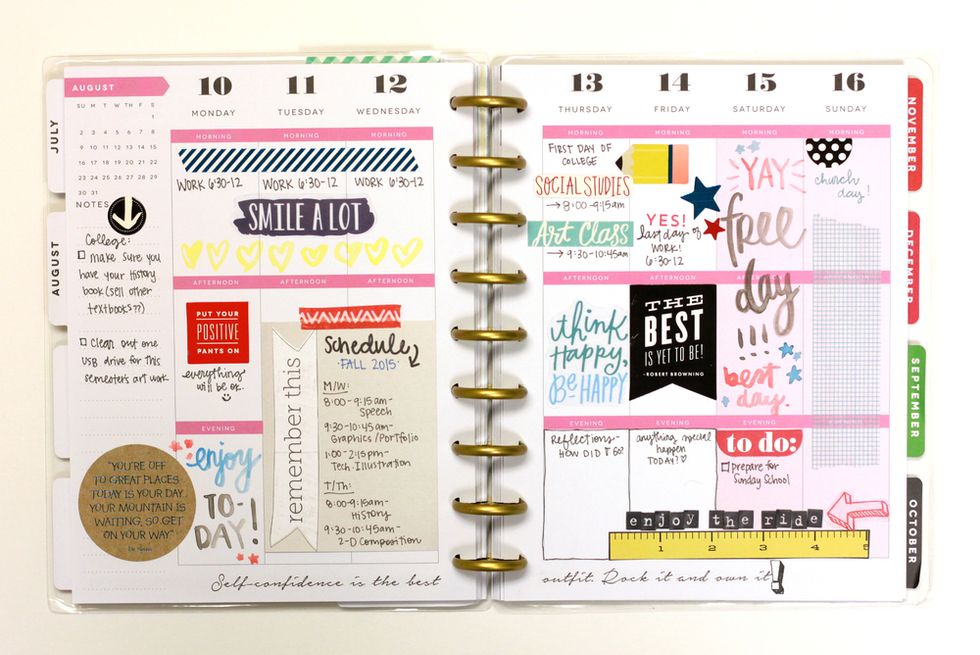 JULY
AUGUST
AUGUST
SU M T W TH F S
1
2 3 4 5 6 7 8
9 10 11 12 13 14 15
16 17 18 19 20 21 22
23 24 25 26 27 28 29
30 31
NOTES
College:
make sure you
have your History
book (sell other
textbooks??)
Clean out one
USB drive for this
semesters art work
"YOU'RE OFF
TO GREAT PLACES.
TODAY IS YOUR DAY.
YOUR MOUNTAIN IS
WAITING, SO GET
ON YOUR WAY."
10
MONDAY
11
TUESDAY
12
WEDNESDAY
MORNING MORNING MORNING
WORK 6:30-12 WORK 6:30-12 WORK 6:30-12
SMILE A LOT
AFTERNOON AFTERNOON AFTERNOON
PUT YOUR
POSITIVE
PANTS ON
everything
will be ok.
EVENING
enjoy
TO-
DAY!
remember this
Schedule
FALL 2015
M/W:
8:00-9:15am-
Speech
9:30-10:45am-
Graphics/Portfolio
1:00-2:15pm-
Tech. Illustration
T/Th:
8:00-9:15am-
History
9:30-10:45am-
2-D Composition
Self-confidence is the best
13
THURSDAY
14
FRIDAY
15
SATURDAY
16
SUNDAY
MORNING MORNING MORNING MORNING
FIRST DAY OF
COLLEGE
SOCIAL STUDIES
→ 8:00-9:15am
Art Class
→ 9:30-10:45am
YES!
last day of
WORK!
6:30-12
YAY
free
day
!!!
best
day.
church
day!
AFTERNOON AFTERNOON AFTERNOON AFTERNOON
think
Happy,
Be HAPPY
THE
BEST
IS YET TO BE!
-ROBERT BROWNING
EVENING EVENING EVENING EVENING
Reflections-
HOW DID IT GO?
anything special
happen
TODAY?
to do:
prepare for
Sunday School
enjoy the ride
1 2 3 4 5
outfit. Rock it and own it!
NOVEMBER
DECEMBER
SEPTEMBER
OCTOBER